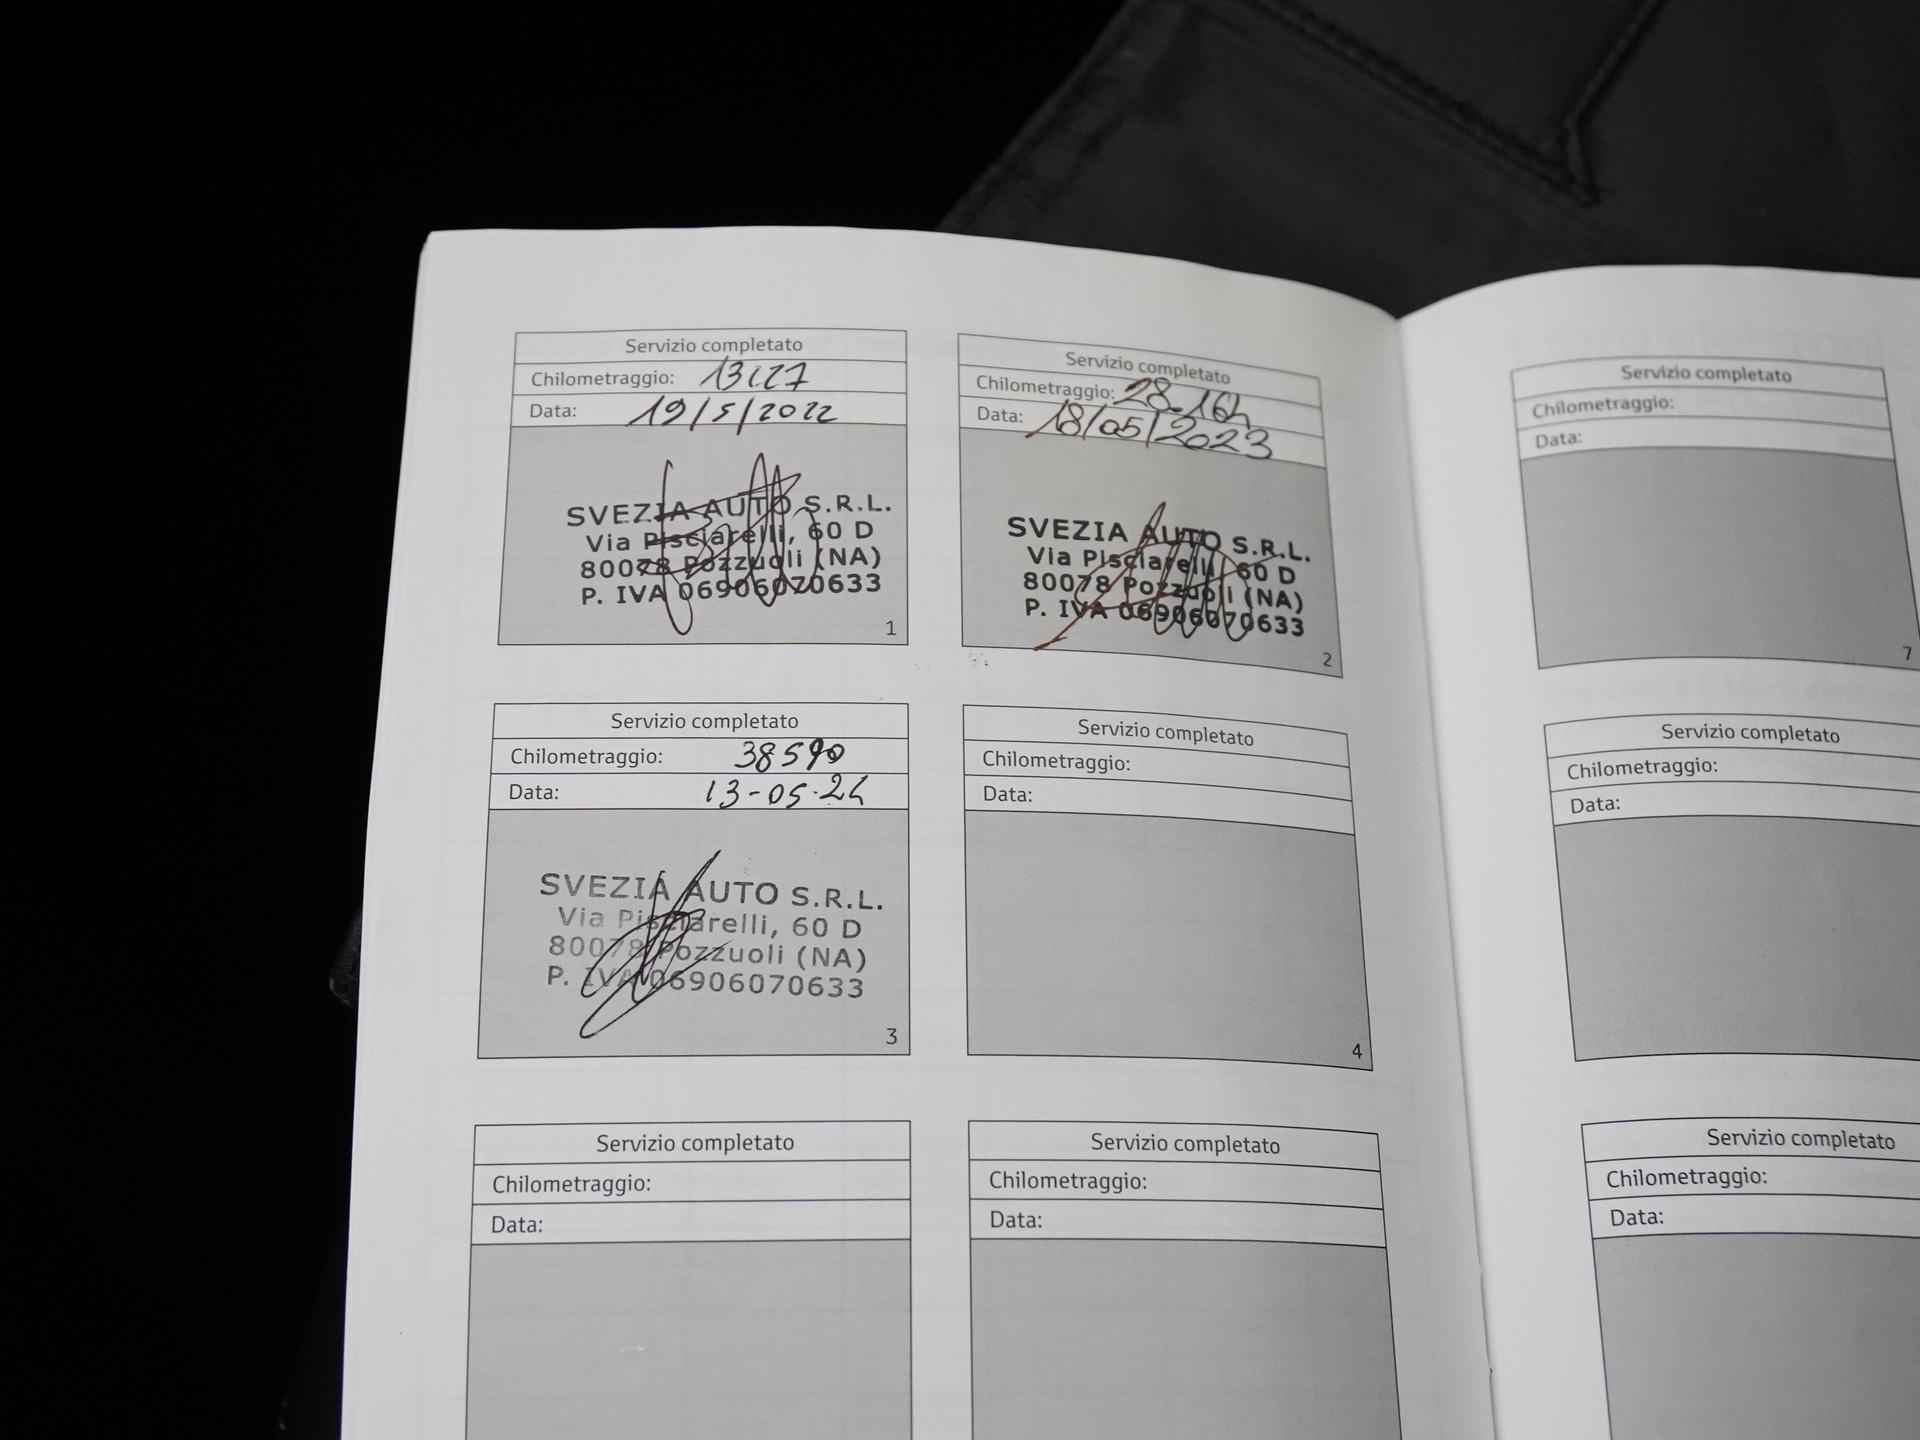 Servizio completato
Chilometraggio:
Data: 19/5/2022
SVEZIA AUTO S.R.L.
Via Pisciarelli, 60 D
80078 Pozzuoli (NA)
P. IVA 06906070633
1
Servizio completato
Chilometraggio: 28.164
Data: 18/05/2023
SVEZIA AUTO S.R.L.
Via Pisciarelli, 60 D
80078 Pozzuoli (NA)
P. IVA 06906070633
2
Servizio completato
Chilometraggio: 38590
Data: 13-05-24
SVEZIA AUTO S.R.L.
Via Pisciarelli, 60 D
80078 Pozzuoli (NA)
P. IVA 06906070633
3
Servizio completato
Chilometraggio:
Data:
4
Servizio completato
Chilometraggio:
Data:
Servizio completato
Chilometraggio:
Data:
Servizio completato
Chilometraggio:
Data:
7
Servizio completato
Chilometraggio:
Data:
Servizio completato
Chilometraggio:
Data: